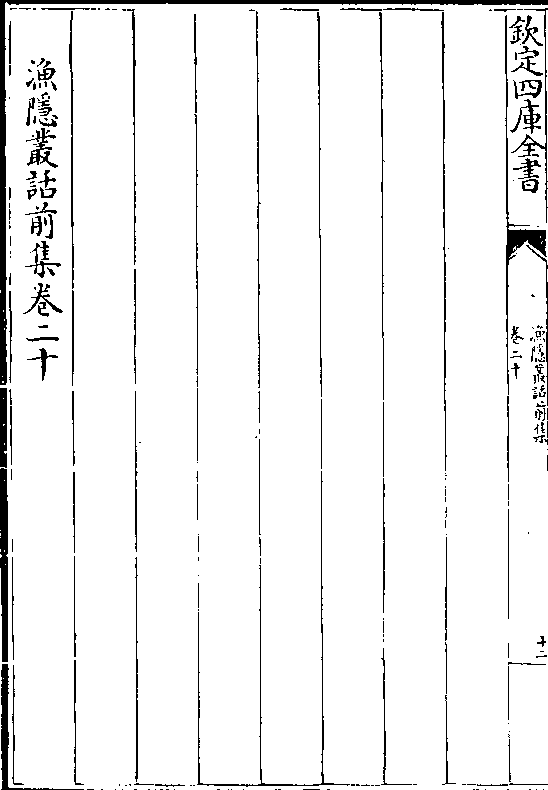 欽定四庫全書
漁隱叢話前集
卷二十
十二
漁隱叢話前集卷二十